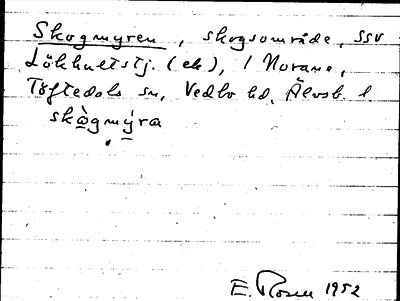 Skogmyren, skogsområde, SSV
Lökhultstj. (ek), i Norane,
Töftedals sn, Vedbo hd, Älvsb. l
skògmýra
E. Rosen 1952